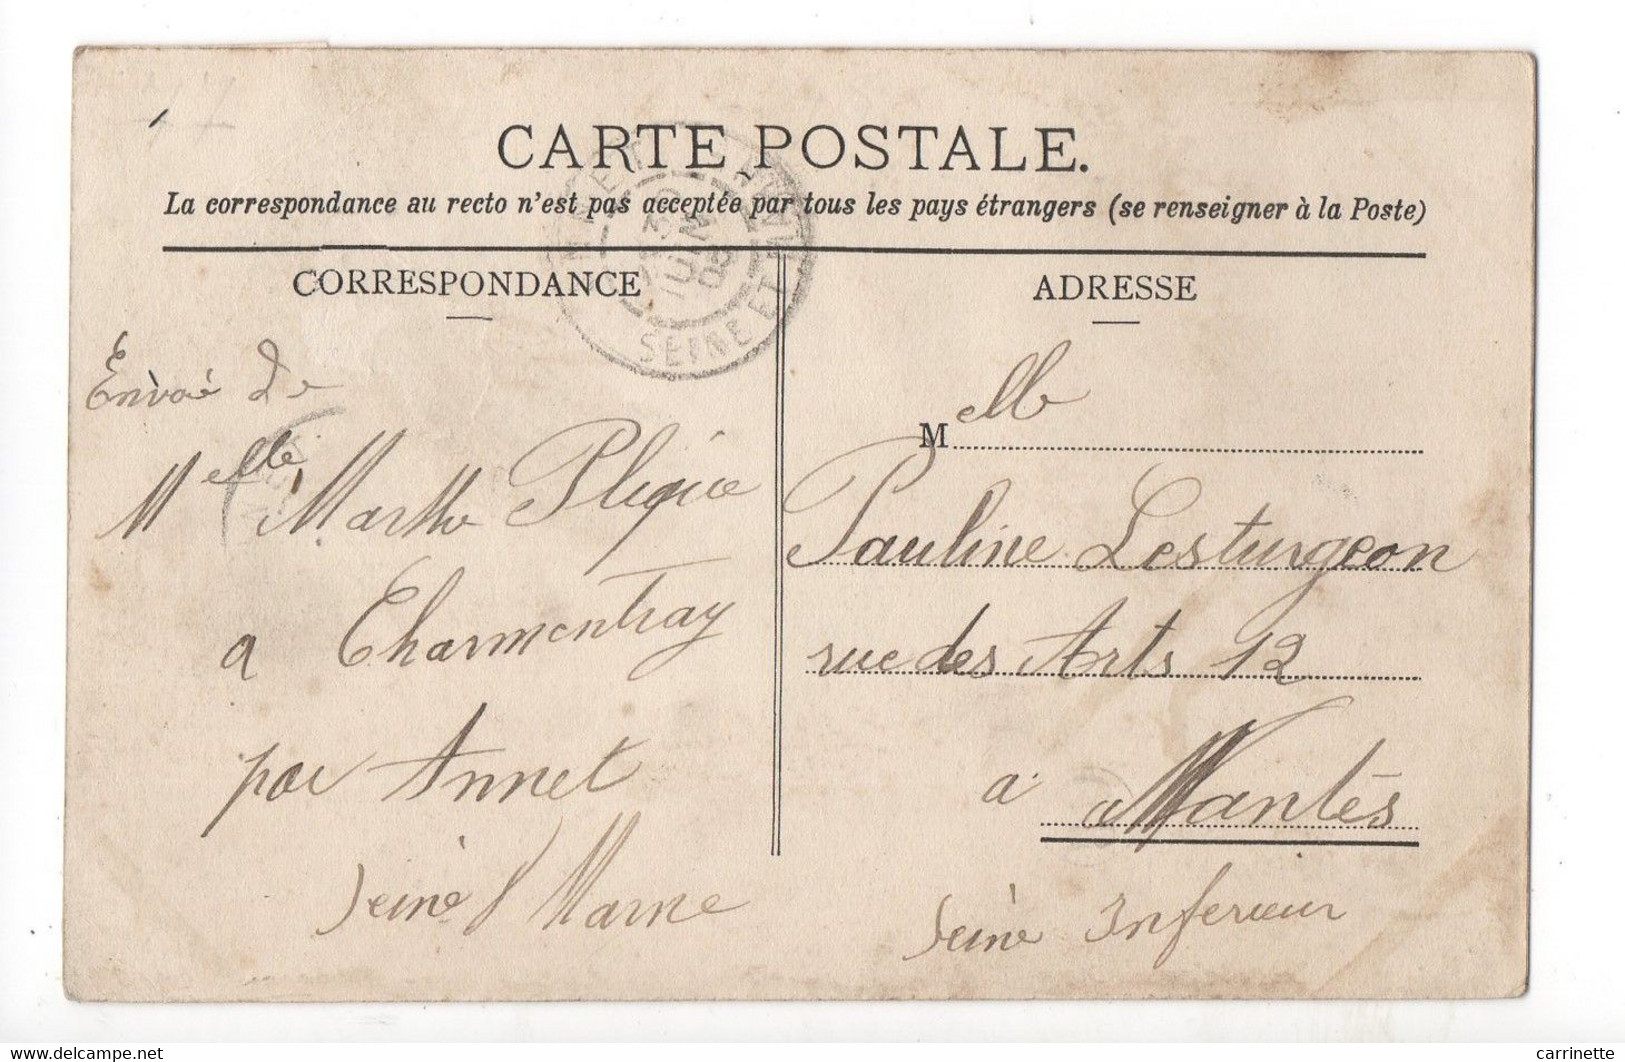 CARTE POSTALE.
La correspondance au recto n'est pas acceptée par tous les pays étrangers (se renseigner à la Poste)
CORRESPONDANCE
Envoé de
Melle Marthe
a Charmentray
par Annet
Seine Marne
ADRESSE
M elle
Pauline Lesturgeon
rue des Arts 12
a Nantes
Seine Inferieur
JUIN
SEINE ET MARNE
delcampe.net
carrinette